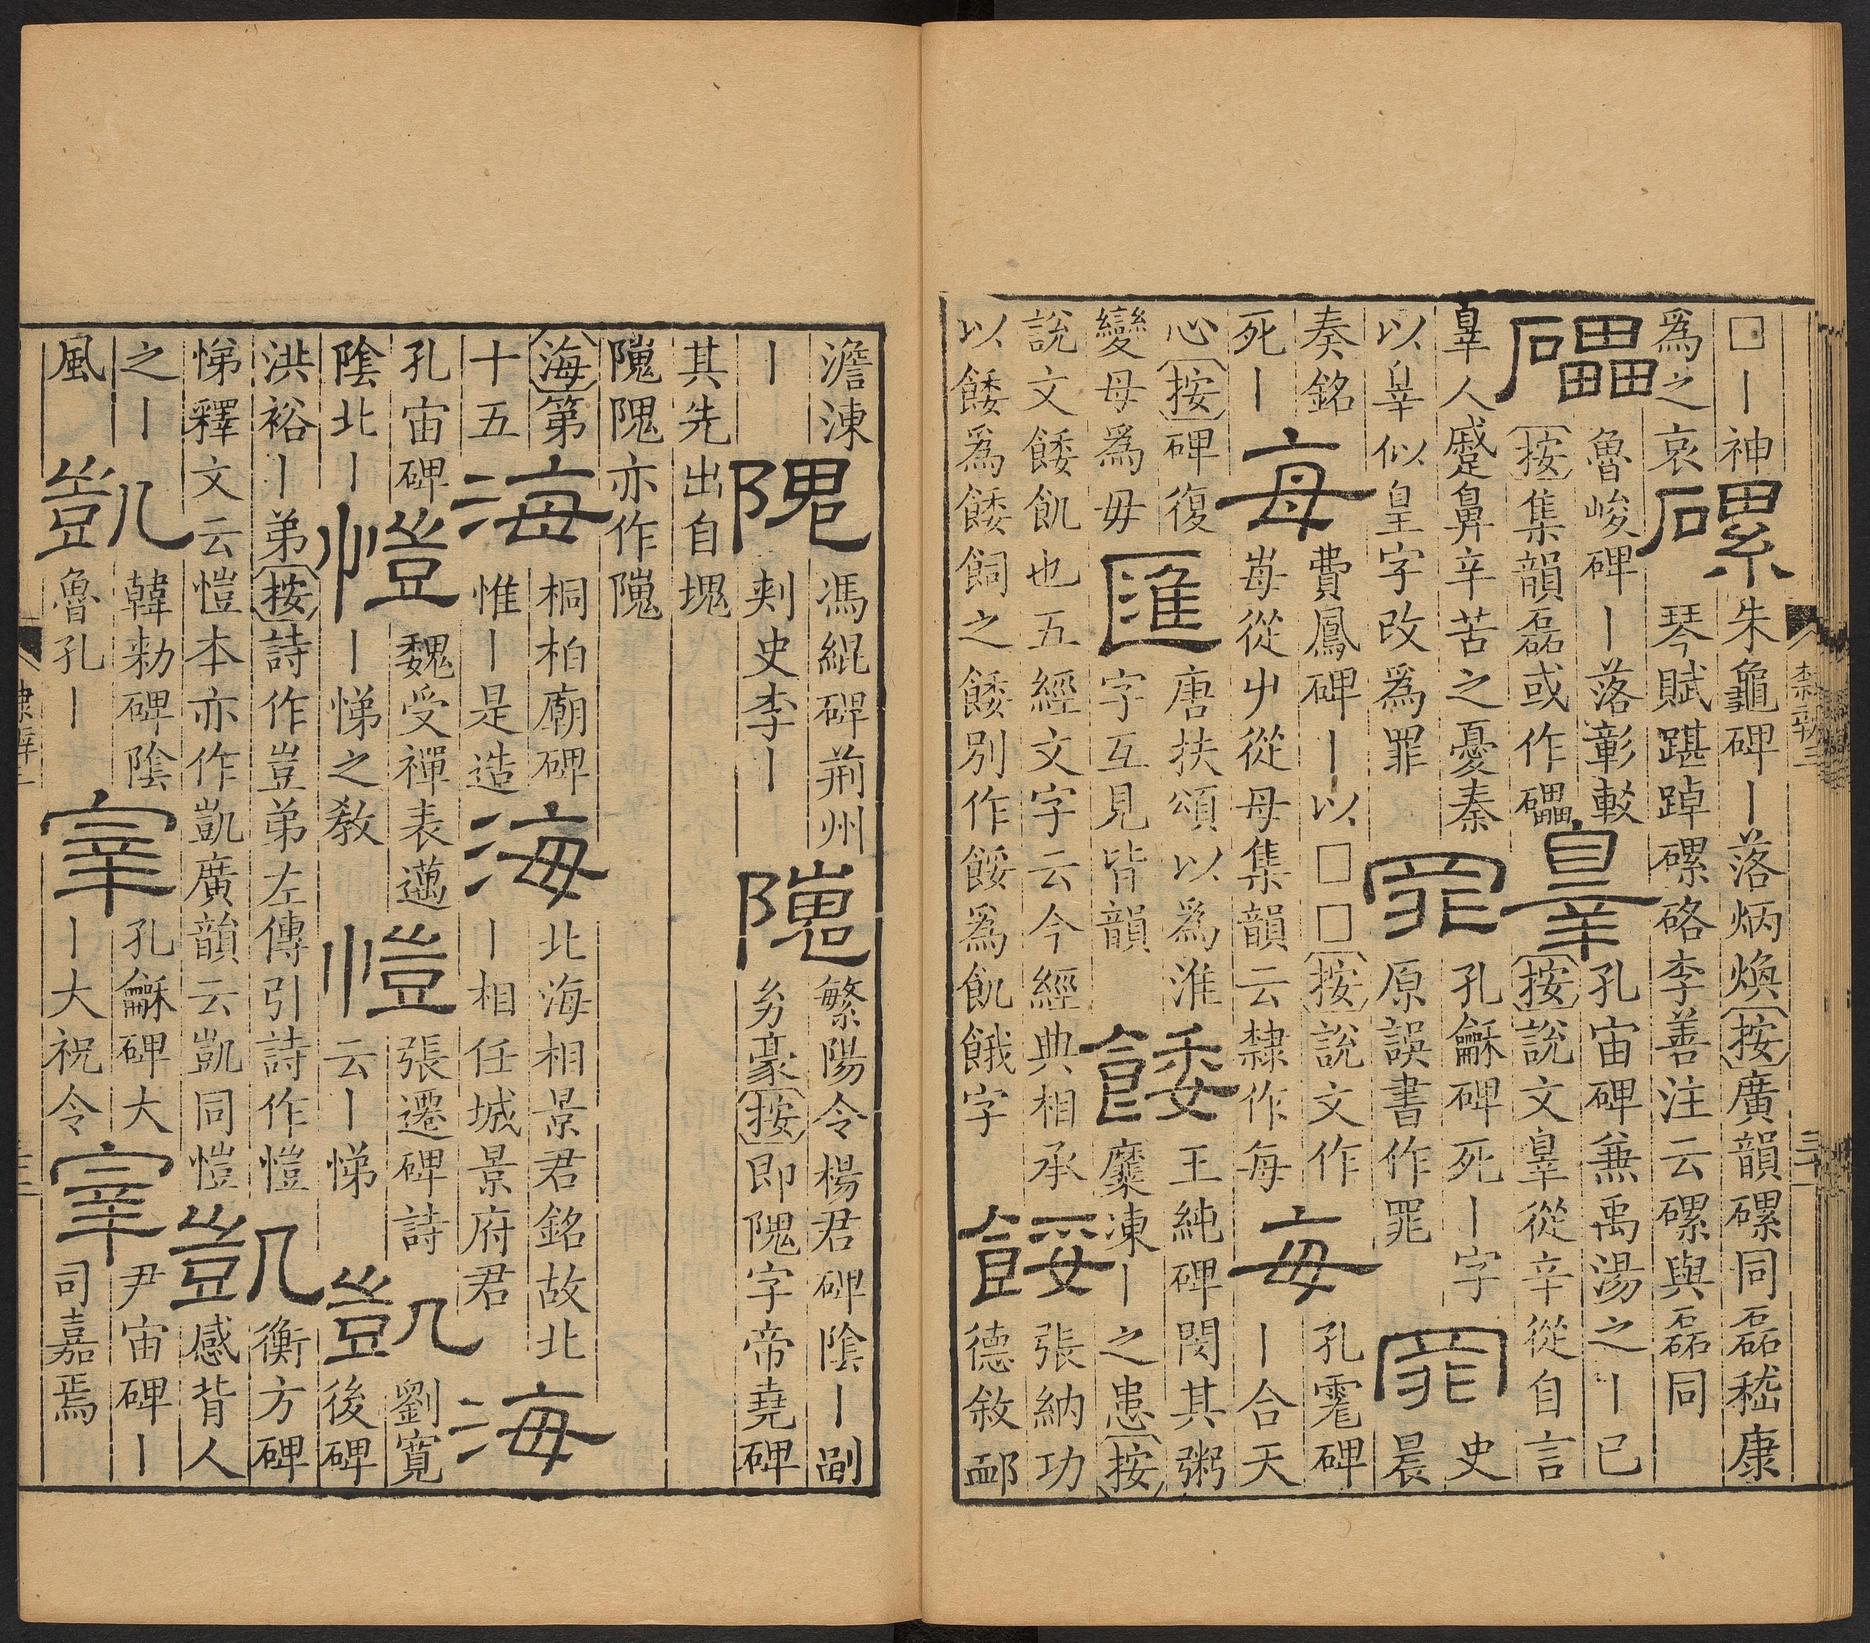 □丨神
為之哀
磥
朱龜碑丨落炳煥按廣韻磥同磊嵇康
琴賦踸踔磥硌李善注云磥與磊同
礧
魯峻碑丨落彰較
按集韻磊或作礧
辠
孔宙碑兼禹湯之丨已
按說文辠從辛從自言
辠人蹙鼻辛苦之憂秦
以辠似皇字改為罪
罪
孔龢碑死丨字
原誤書作罪
罪
史
晨
奏銘
死丨
每
費鳳碑丨以□□按說文作
每從屮從母集韻云隸作每
每
孔雮碑
丨合天
心按碑復
變母為毋
匯
唐扶頌以為淮
字互見皆韻
餧
王純碑閔其粥
糜凍丨之患按
說文餧飢也五經文字云今經典相承
以餧為餧飼之餧別作餒為飢餓字
餒
張納功
德敘䘏
澹涷
丨
隗
馮緄碑荊州
刺史李丨
隗
繁陽令楊君碑陰丨副
穷豪按即隗字帝堯碑
其先出自塊
隗隗亦作隗
海第
十五
海
桐柏廟碑
惟丨是造
海
北海相景君銘故北
丨相任城景府君
海
孔宙碑
陰北丨
愷
魏受禪表邁
丨悌之教
愷
張遷碑詩
云丨悌
凱
劉寬
後碑
洪裕丨弟按詩作豈弟左傳引詩作愷
悌釋文云愷本亦作凱廣韻云凱同愷
凱
衡方碑
感背人
之丨
風
凱
韓勑碑陰
魯孔丨
宰
孔龢碑大
丨大祝令
宰
尹宙碑丨
司嘉焉